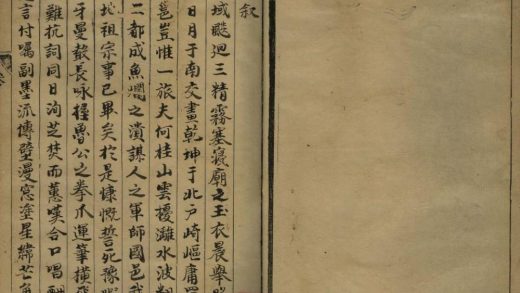 叙
域飈迴三精霧塞寢廟之玉衣晨舉
日月于南交畫乾坤于北戶崎嶇庸
邕豈惟一旅夫何桂山雲擾灕水波
二都成魚爛之潰謀人之軍師國邑
祖宗事已畢矣於是慷慨誓死豫
牙曼聲長咏徑魯公之拳爪運筆橫
難抗詞同日洵芝焚而蕙嘆合口唱
言付囑副墨流傳壁漫窓塗星緯芒角